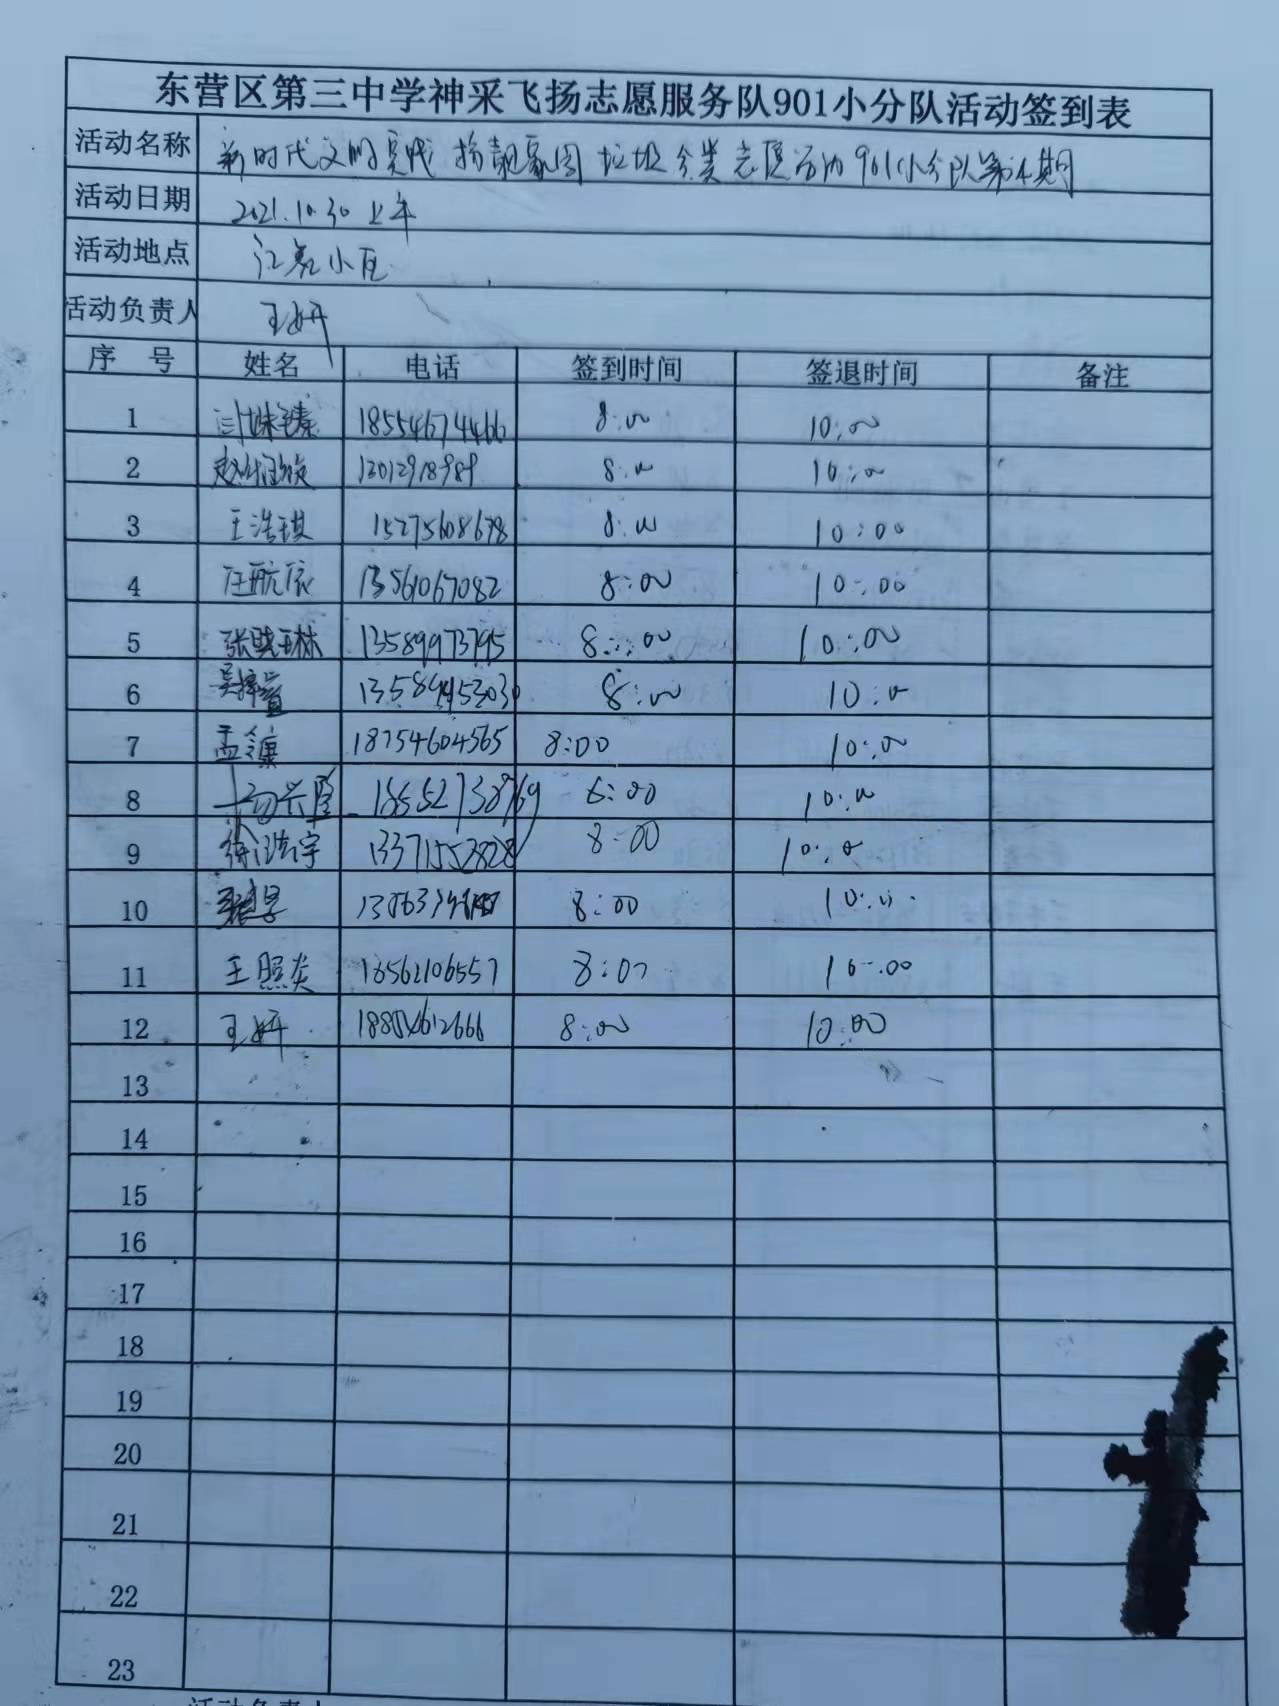 东营区第三中学神采飞扬志愿服务队901小分队活动签到表
活动名称 新时代文明实践 扮靓家园 垃圾分类志愿活动901小分队第 期
活动日期 2021.10.30 上午
活动地点 小区
活动负责人 王妍
序 号 姓名 电话 签到时间 签退时间 备注
1 18554674466 8:00 10:00
2 8:00 10:00
3 王浩琪 15275608678 8:00 10:00
4 13561067082 8:00 10:00
5 张晓琳 13589973795 8:00 10:00
6 8:00 10:00
7 孟 18754604565 8:00 10:00
8 10:00
9 徐浩宇 8:00 10:00
10 8:00 10:00
11 王照炎 8:00 10:00
12 王妍 8:00 10:00
13
14
15
16
17
18
19
20
21
22
23
活动负责人